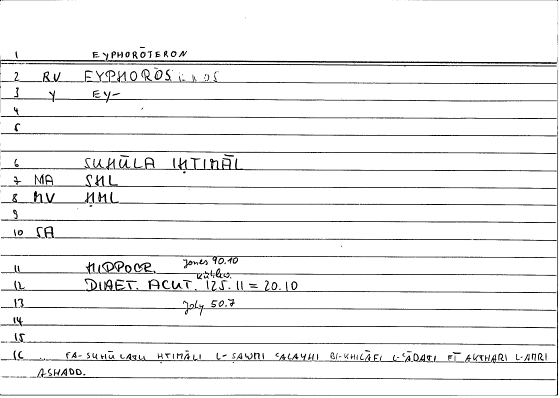 1 EYPHORŌTERON
2 RV EYPHOROS
3 Y EY-
4
5
6 SUHŪLA IḤTIMĀL
7 MA SHL
8 MV ḤML
9
10 SA
Jones 90.10
11 HIPPOCR.
Kühlew.
12 DIAET. ACUT. 125.11 = 20.10
13 Joly 50.7
14
15
16 ... FA-SUHŪLATU ḤTIMĀLI L-ṢAWMI ʿALAYHI BI-KHILĀFI L-ʿĀDATI FĪ AKTHARI L-AMRI
ASHADD.